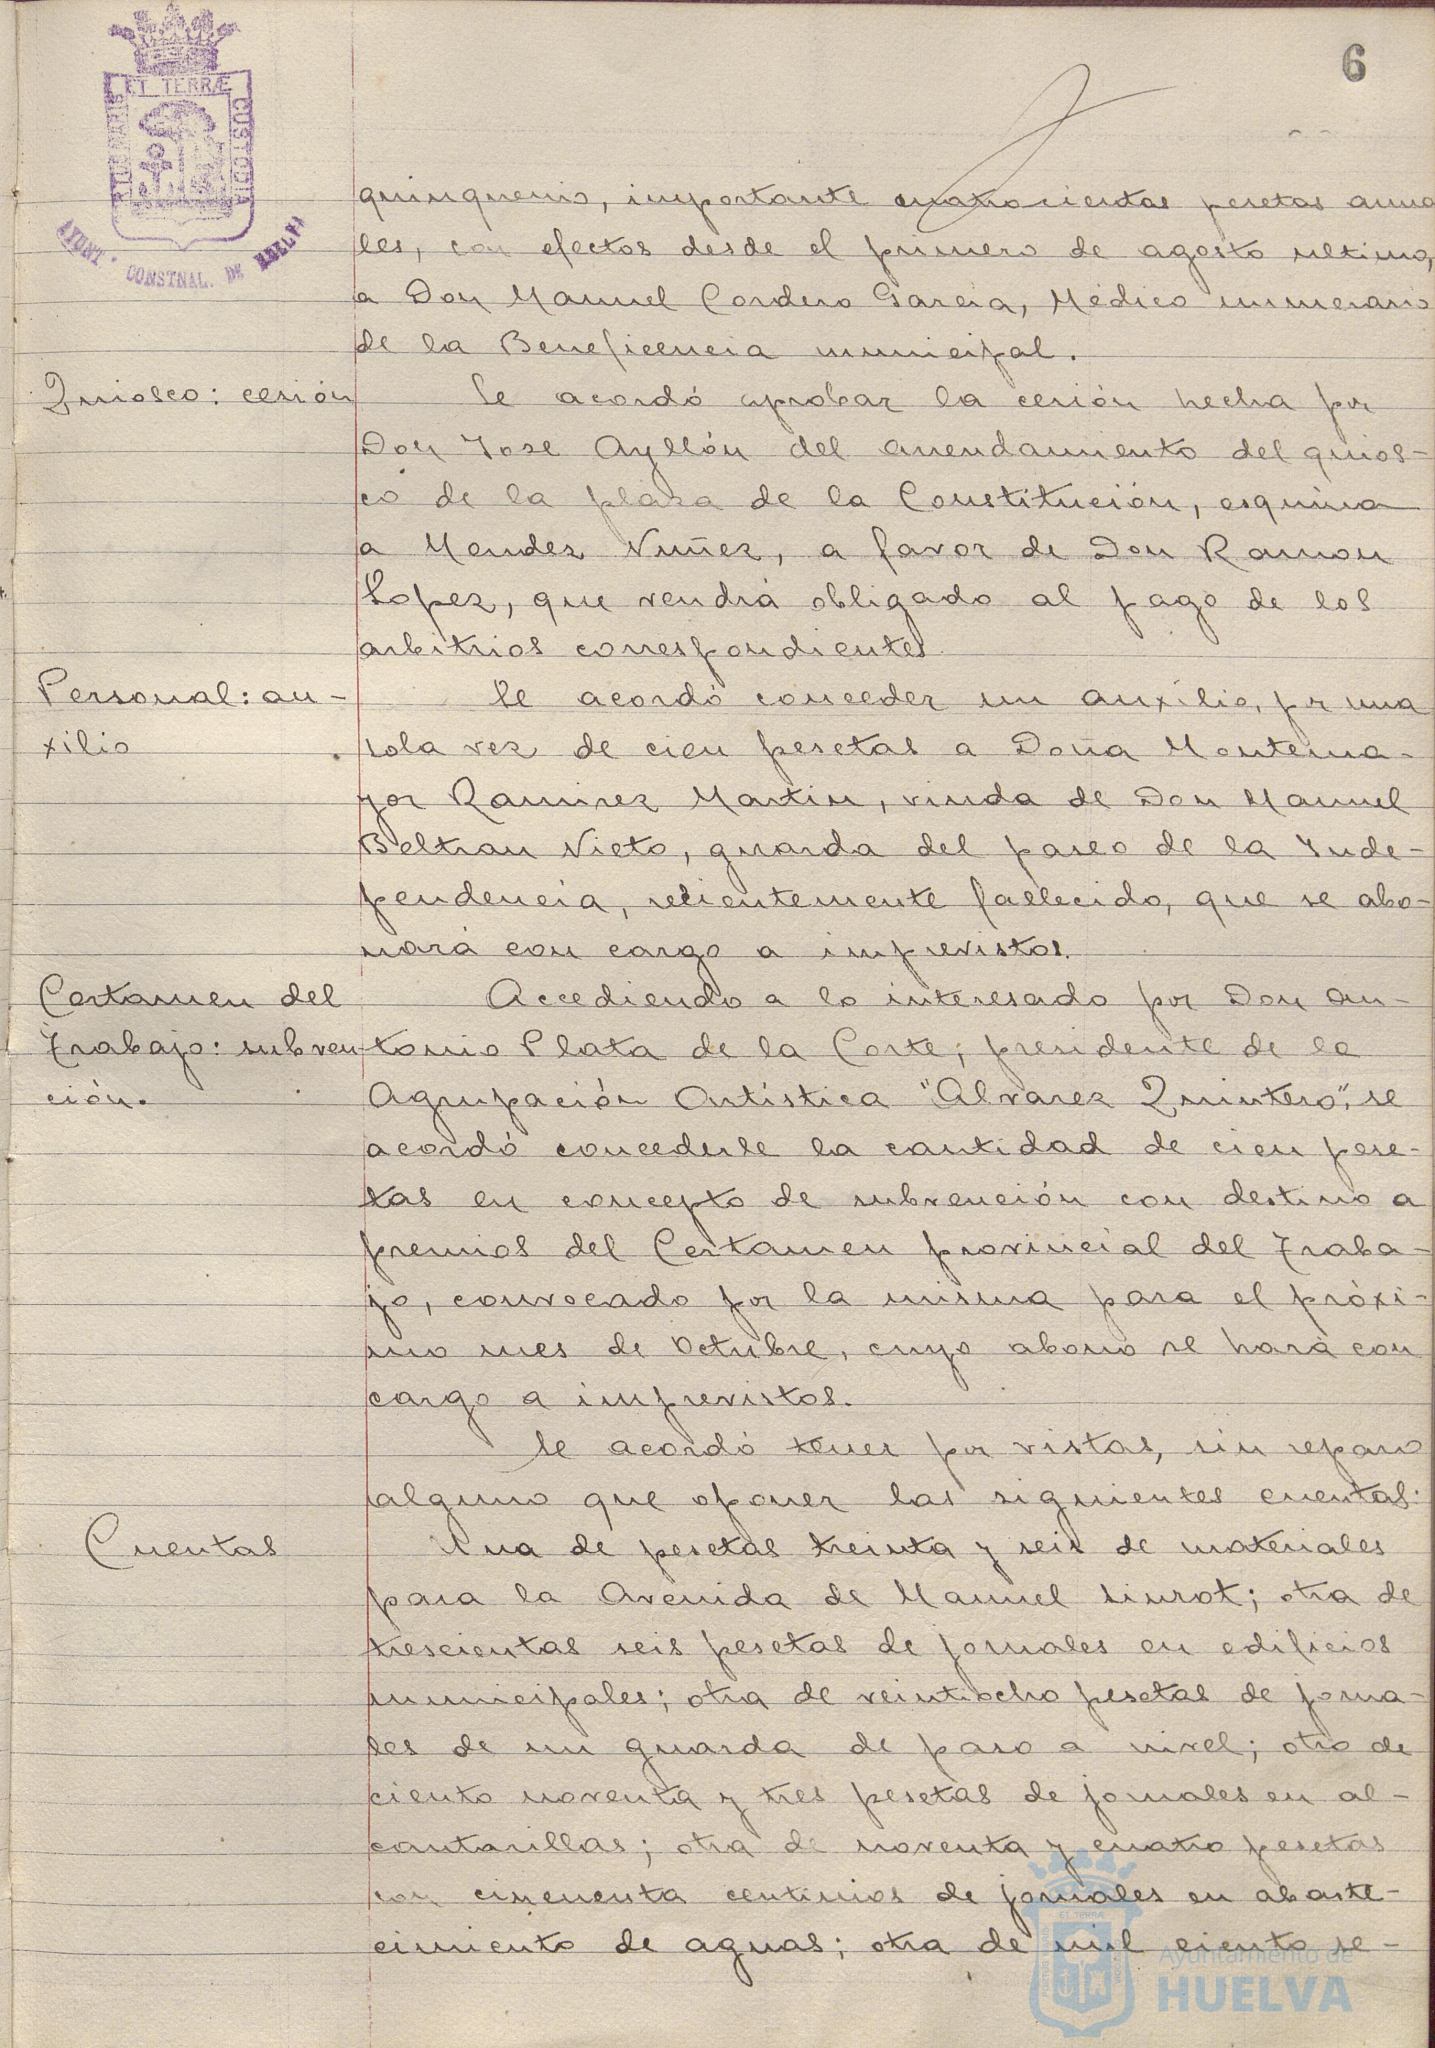 6
PORTUS MARIS ET TERRÆ CUSTODIA
AYUNT. CONSTNAL. DE HUELVA
quinquenio, importante cuatrocientas pesetas anua
les, con efectos desde el primero de agosto ultimo,
a Don Manuel Cordero Garcia, Médico numerario
de la Beneficencia municipal.
Quiosco: cesión
Se acordó aprobar la cesión hecha por
Don Jose Ayllón del arrendamiento del quios-
co de la plaza de la Constitución, esquina
a Mendez Nuñez, a favor de Don Ramon
Lopez, que vendrá obligado al pago de los
arbitrios correspondientes.
Personal: au-
xilio
Se acordó conceder un auxilio, por una
sola vez de cien pesetas a Doña Montema-
yor Ramirez Martin, viuda de Don Manuel
Beltran Nieto, guarda del paseo de la Inde-
pendencia, recientemente fallecido, que se abo-
nará con cargo a imprevistos.
Certamen del
Trabajo: subven
ción.
Accediendo a lo interesado por Don An-
tonio Plata de la Corte, presidente de la
Agrupación Artística "Alvarez Quintero", se
acordó concederle la cantidad de cien pese-
tas en concepto de subvención con destino a
premios del Certamen provincial del Traba-
jo, convocado por la misma para el próxi-
mo mes de Octubre, cuyo abono se hará con
cargo a imprevistos.
Se acordó tener por vistas, sin reparo
alguno que oponer las siguientes cuentas:
Cuentas
Una de pesetas treinta y seis de materiales
para la Avenida de Manuel Siurot; otra de
trescientas seis pesetas de jornales en edificios
municipales; otra de veintiocho pesetas de jorna-
les de un guarda de paso a nivel; otro de
ciento noventa y tres pesetas de jornales en al-
cantarillas; otra de noventa y cuatro pesetas
con cincuenta centimos de jornales en abaste-
cimiento de aguas; otra de mil ciento se-
Ayuntamiento de
HUELVA